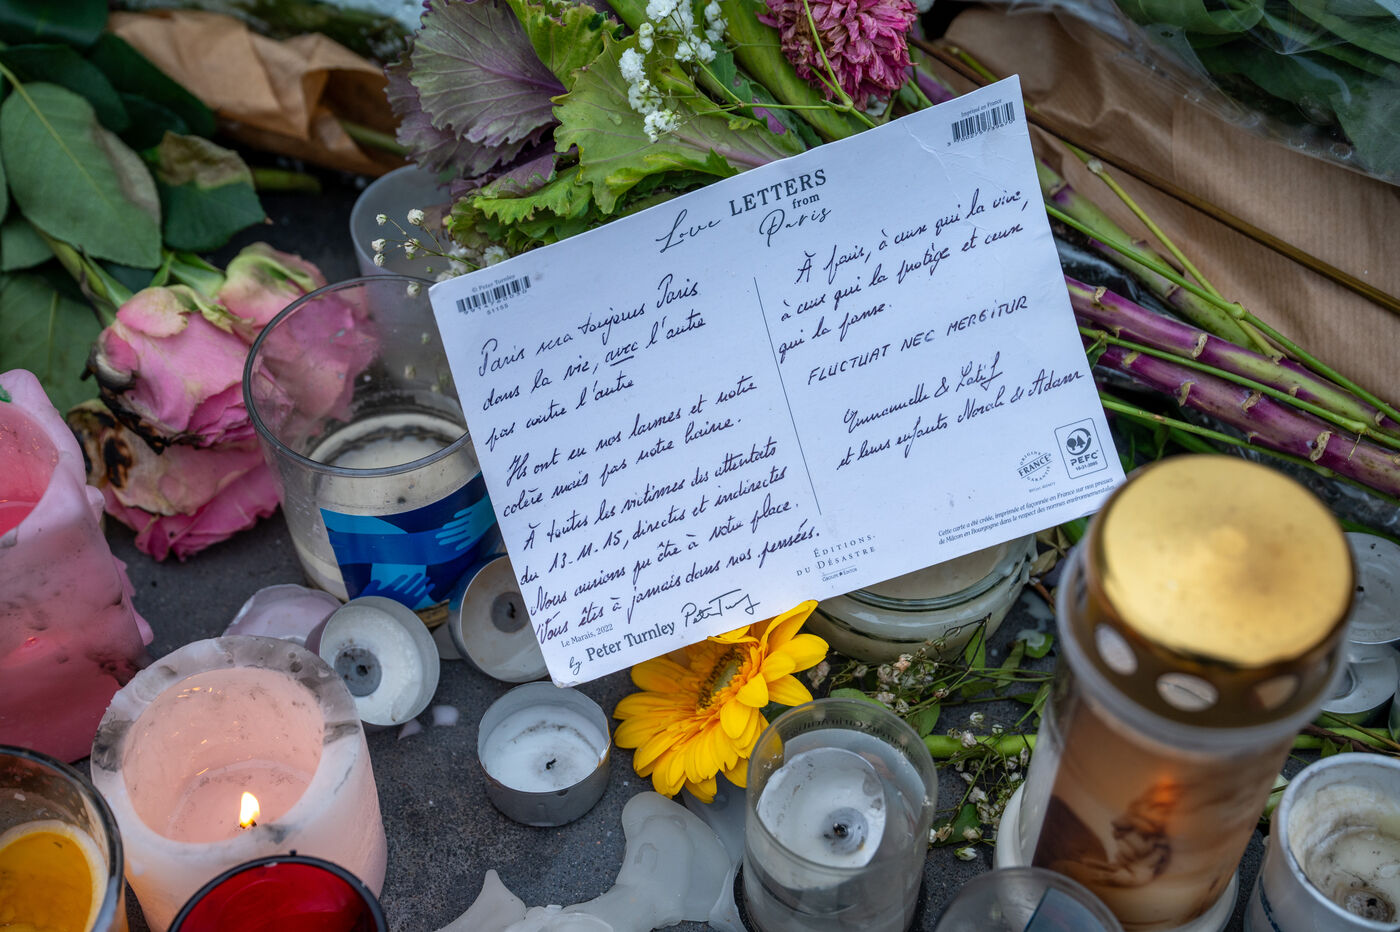 LETTERS
from
Love Paris
Imprimé en France
© Peter Turnley
51155
Paris sera toujours Paris
dans la vie, avec l'autre
pas contre l'autre
Ils ont eu nos larmes et notre
colère mais pas notre haine.
À toutes les victimes des attentats
du 13.11.15, directes et indirectes
Nous aurions pu être à votre place.
Vous êtes à jamais dans nos pensées.
Le Marais, 2022
by Peter Turnley Peter Turnley
À Paris, à ceux qui la vive,
à ceux qui la protège et ceux
qui la panse.
FLUCTUAT NEC MERGITUR
Emmanuelle & Latif
et leurs enfants Norah & Adam
ORIGINE
FRANCE
GARANTIE
PEFC
10-31-2085
Cette carte a été créée, imprimée et façonnée en France sur nos presses
de Mâcon en Bourgogne dans le respect des normes environnementales.
ÉDITIONS
DU DÉSASTRE
GROUPE EDITOR